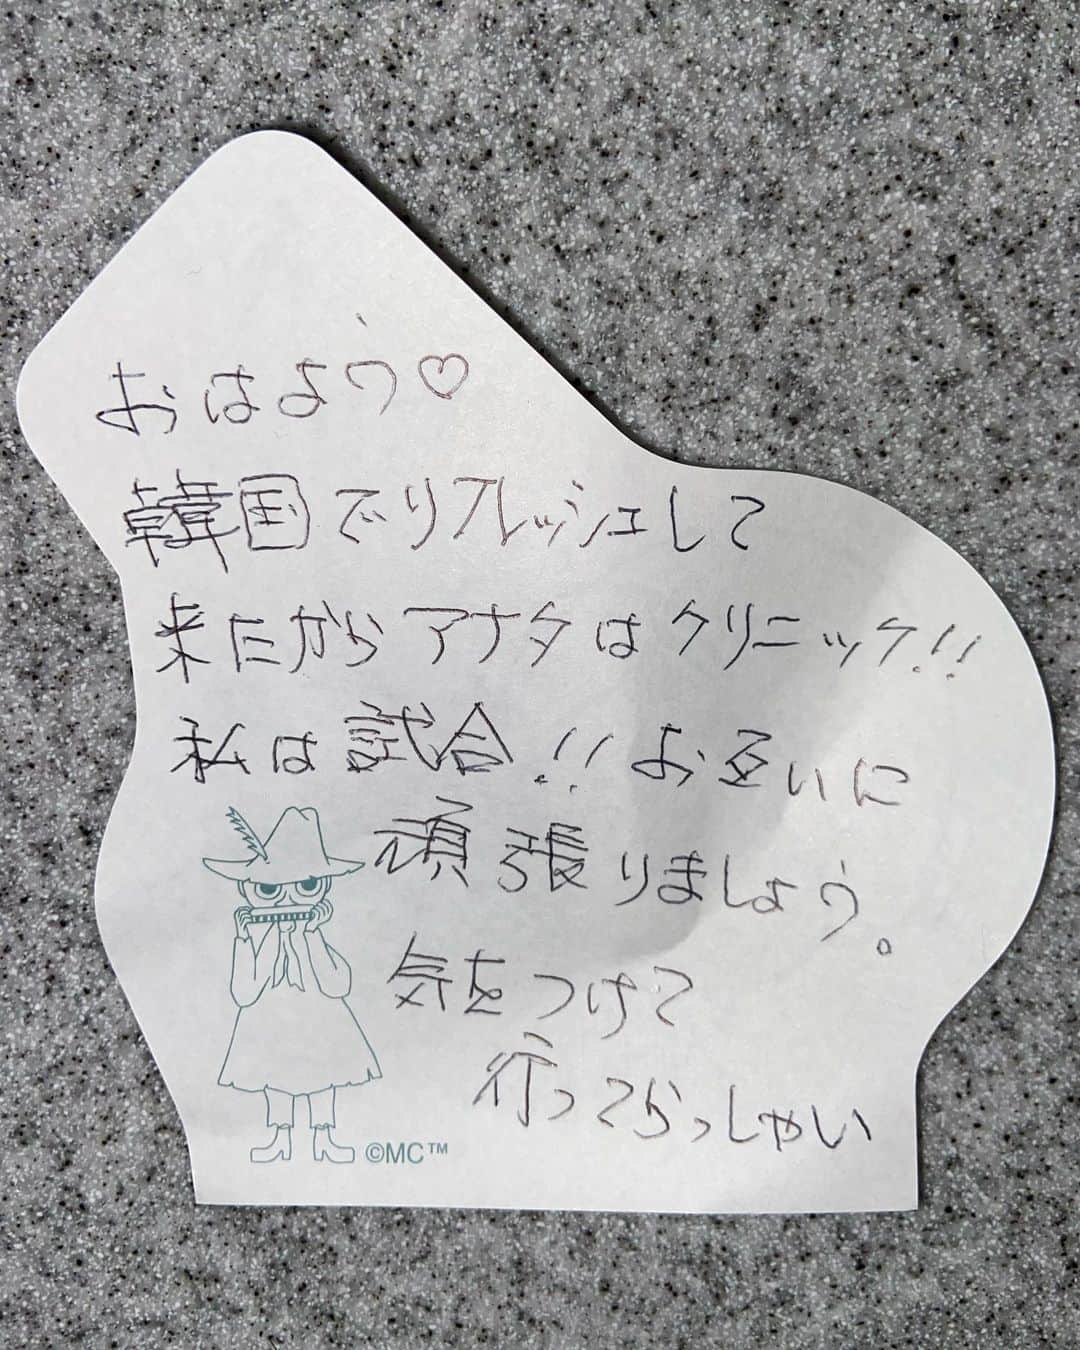 おはよう♡
韓国でリフレッシュして
来たからアナタはクリニック!!
私は試合!!お互いに
頑張りましょう。
気をつけて
行ってらっしゃい
©MC™